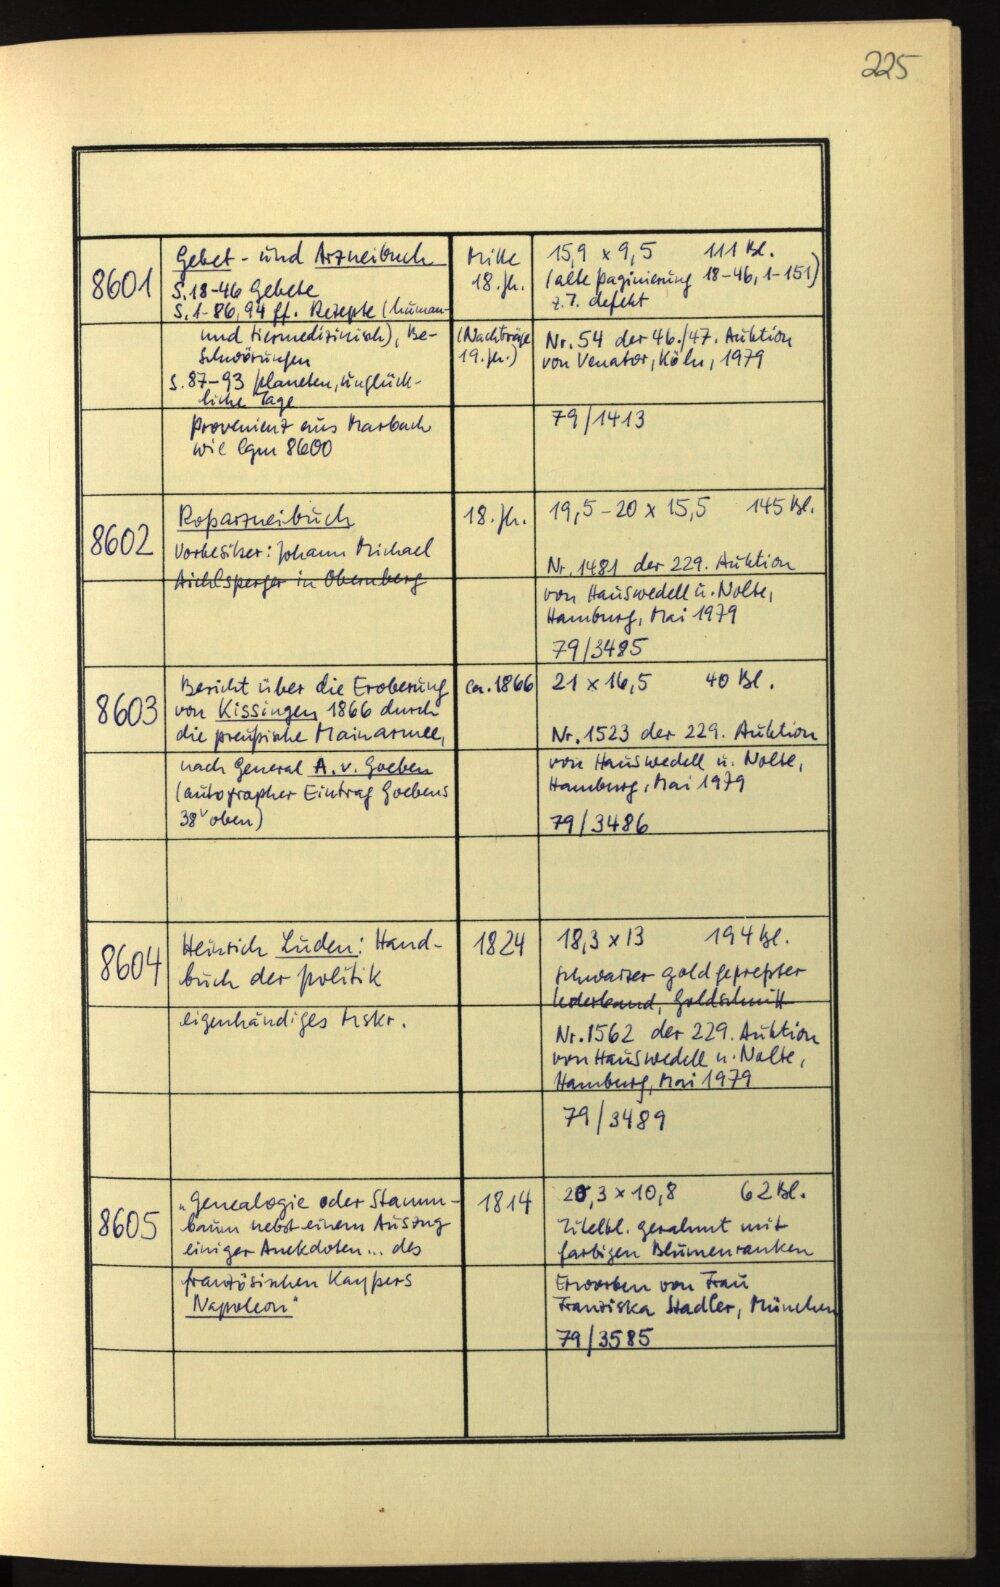 225
8601
Gebet- und Arzneibuch
S. 18-46 Gebete
S. 1-86, 94 ff. Rezepte (human-
und tiermedizinisch), Be-
schwörungen
S. 87-93 Planeten, unglück-
liche Tage
Provenienz aus Marbach
wie Cgm 8600
Mitte
18. Jh.
(Nachträge
19. Jh.)
15,9 x 9,5 111 Bl.
(alte Paginierung 18-46, 1-151)
z.T. defekt
Nr. 54 der 46./47. Auktion
von Venator, Köln, 1979
79/1413
8602
Roßarzneibuch
Vorbesitzer: Johann Michael
Aichlsperger in Obernberg
18. Jh.
19,5-20 x 15,5 145 Bl.
Nr. 1481 der 229. Auktion
von Hauswedell u. Nolte,
Hamburg, Mai 1979
79/3485
8603
Bericht über die Eroberung
von Kissingen 1866 durch
die preußische Mainarmee,
nach General A. v. Goeben
(autographer Eintrag Goebens
38v oben)
ca. 1866
21 x 16,5 40 Bl.
Nr. 1523 der 229. Auktion
von Hauswedell u. Nolte,
Hamburg, Mai 1979
79/3486
8604
Heinrich Luden: Hand-
buch der Politik
eigenhändiges Mskr.
1824
18,3 x 13 194 Bl.
schwarzer goldgepreßter
Lederband, Goldschnitt
Nr. 1562 der 229. Auktion
von Hauswedell u. Nolte,
Hamburg, Mai 1979
79/3489
8605
"Genealogie oder Stamm-
baum nebst einem Auszug
einiger Anekdoten... des
französischen Kaypers
Napoleon"
1814
20,3 x 10,8 62 Bl.
Titelbl. gerahmt mit
farbigen Blumenranken
Erworben von Frau
Franziska Stadler, München
79/3585